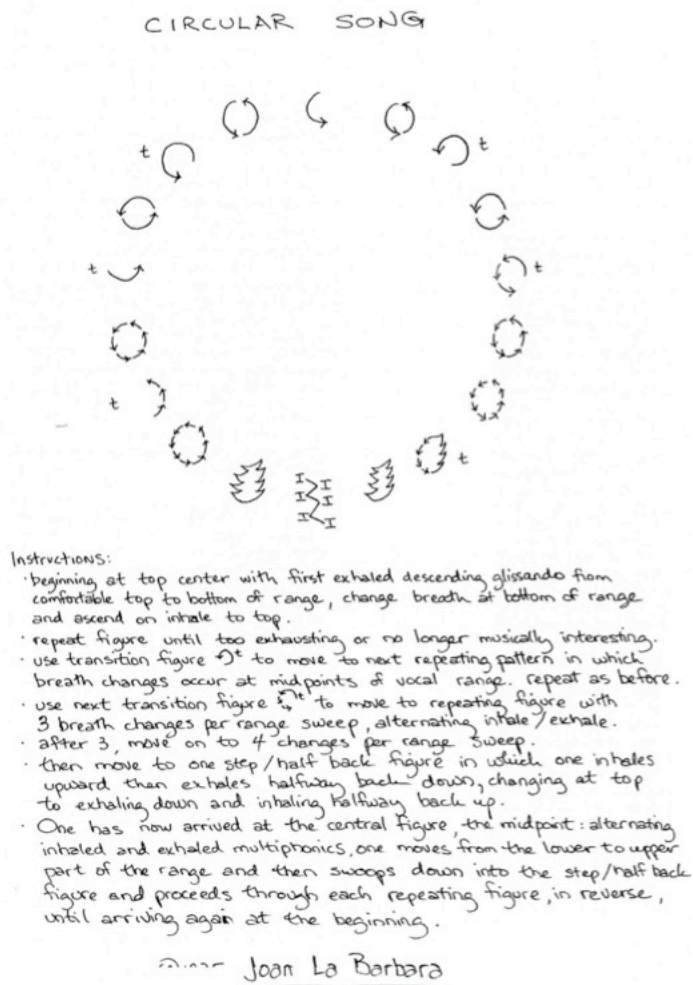 CIRCULAR SONG
t
t
t
t
t
t
I I
I I
I I
Instructions:
· beginning at top center with first exhaled descending glissando from
comfortable top to bottom of range, change breath at bottom of range
and ascend on inhale to top.
· repeat figure until too exhausting or no longer musically interesting.
· use transition figure t to move to next repeating pattern in which
breath changes occur at midpoints of vocal range. repeat as before.
· use next transition figure t to move to repeating figure with
3 breath changes per range sweep, alternating inhale/exhale.
· after 3, move on to 4 changes per range sweep.
· then move to one step/half back figure in which one inhales
upward then exhales halfway back down, changing at top
to exhaling down and inhaling halfway back up.
· One has now arrived at the central figure, the midpoint: alternating
inhaled and exhaled multiphonics, one moves from the lower to upper
part of the range and then swoops down into the step/half back
figure and proceeds through each repeating figure, in reverse,
until arriving again at the beginning.
Joan La Barbara